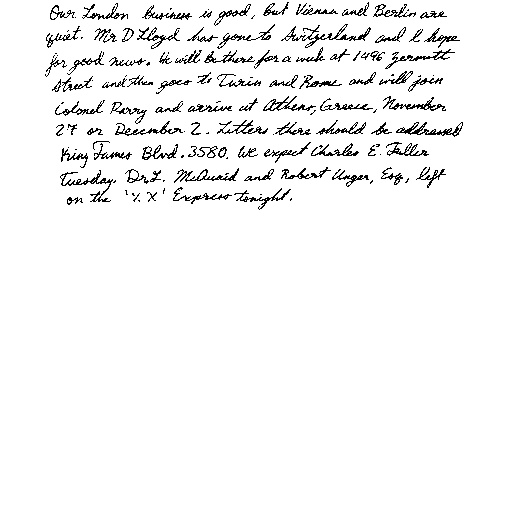 Our London business is good, but Vienna and Berlin are
quiet. Mr D Lloyd has gone to Switzerland and I hope
for good news. He will be there for a week at 1496 Zermott
Street and then goes to Turin and Rome and will join
Colonel Parry and arrive at Athens, Greece, November
27 or December 2. Letters there should be addressed
King James Blvd. 3580. We expect Charles E. Fuller
Tuesday. Dr. L. McQuaid and Robert Unger, Esq, left
on the 'Y. X' Express tonight.